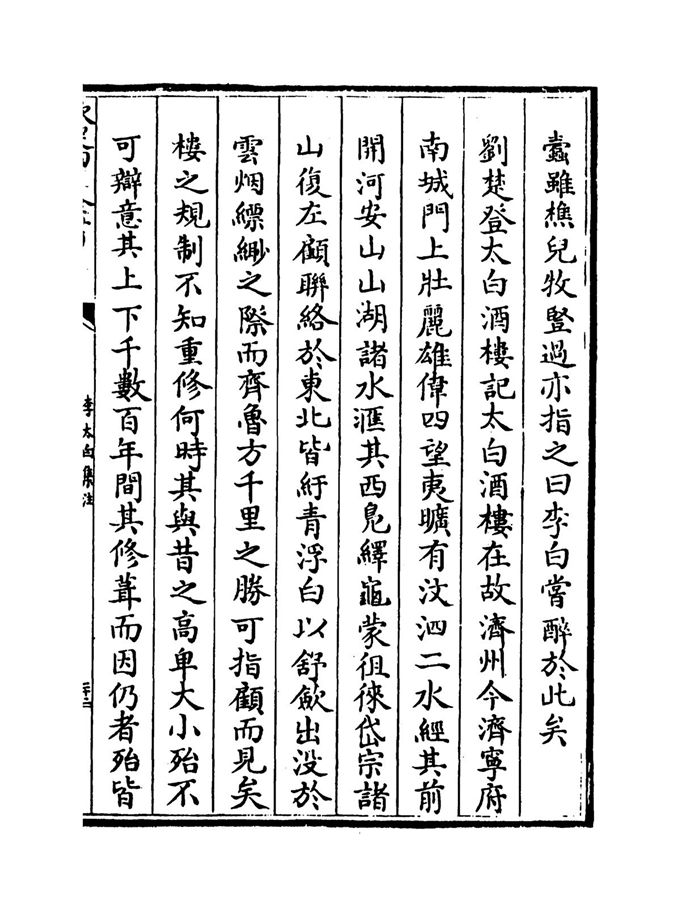 蠹雖樵兒牧豎過亦指之曰李白嘗醉於此矣
劉楚登太白酒樓記太白酒樓在故濟州今濟寧府
南城門上壯麗雄偉四望夷曠有汶泗二水經其前
開河安山山湖諸水滙其西鳬繹龜蒙徂徠岱宗諸
山復左顧聯絡於東北皆紆青浮白以舒歛出没於
雲烟縹緲之際而齊魯方千里之勝可指顧而見矣
樓之規制不知重修何時其與昔之高卑大小殆不
可辯意其上下千數百年間其修葺而因仍者殆皆
李太白集注